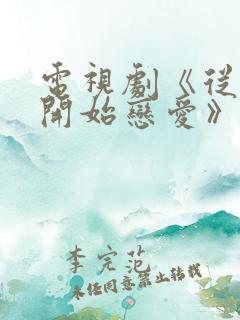 電視劇《從
開始戀愛》
李完范
未经同意禁止转载